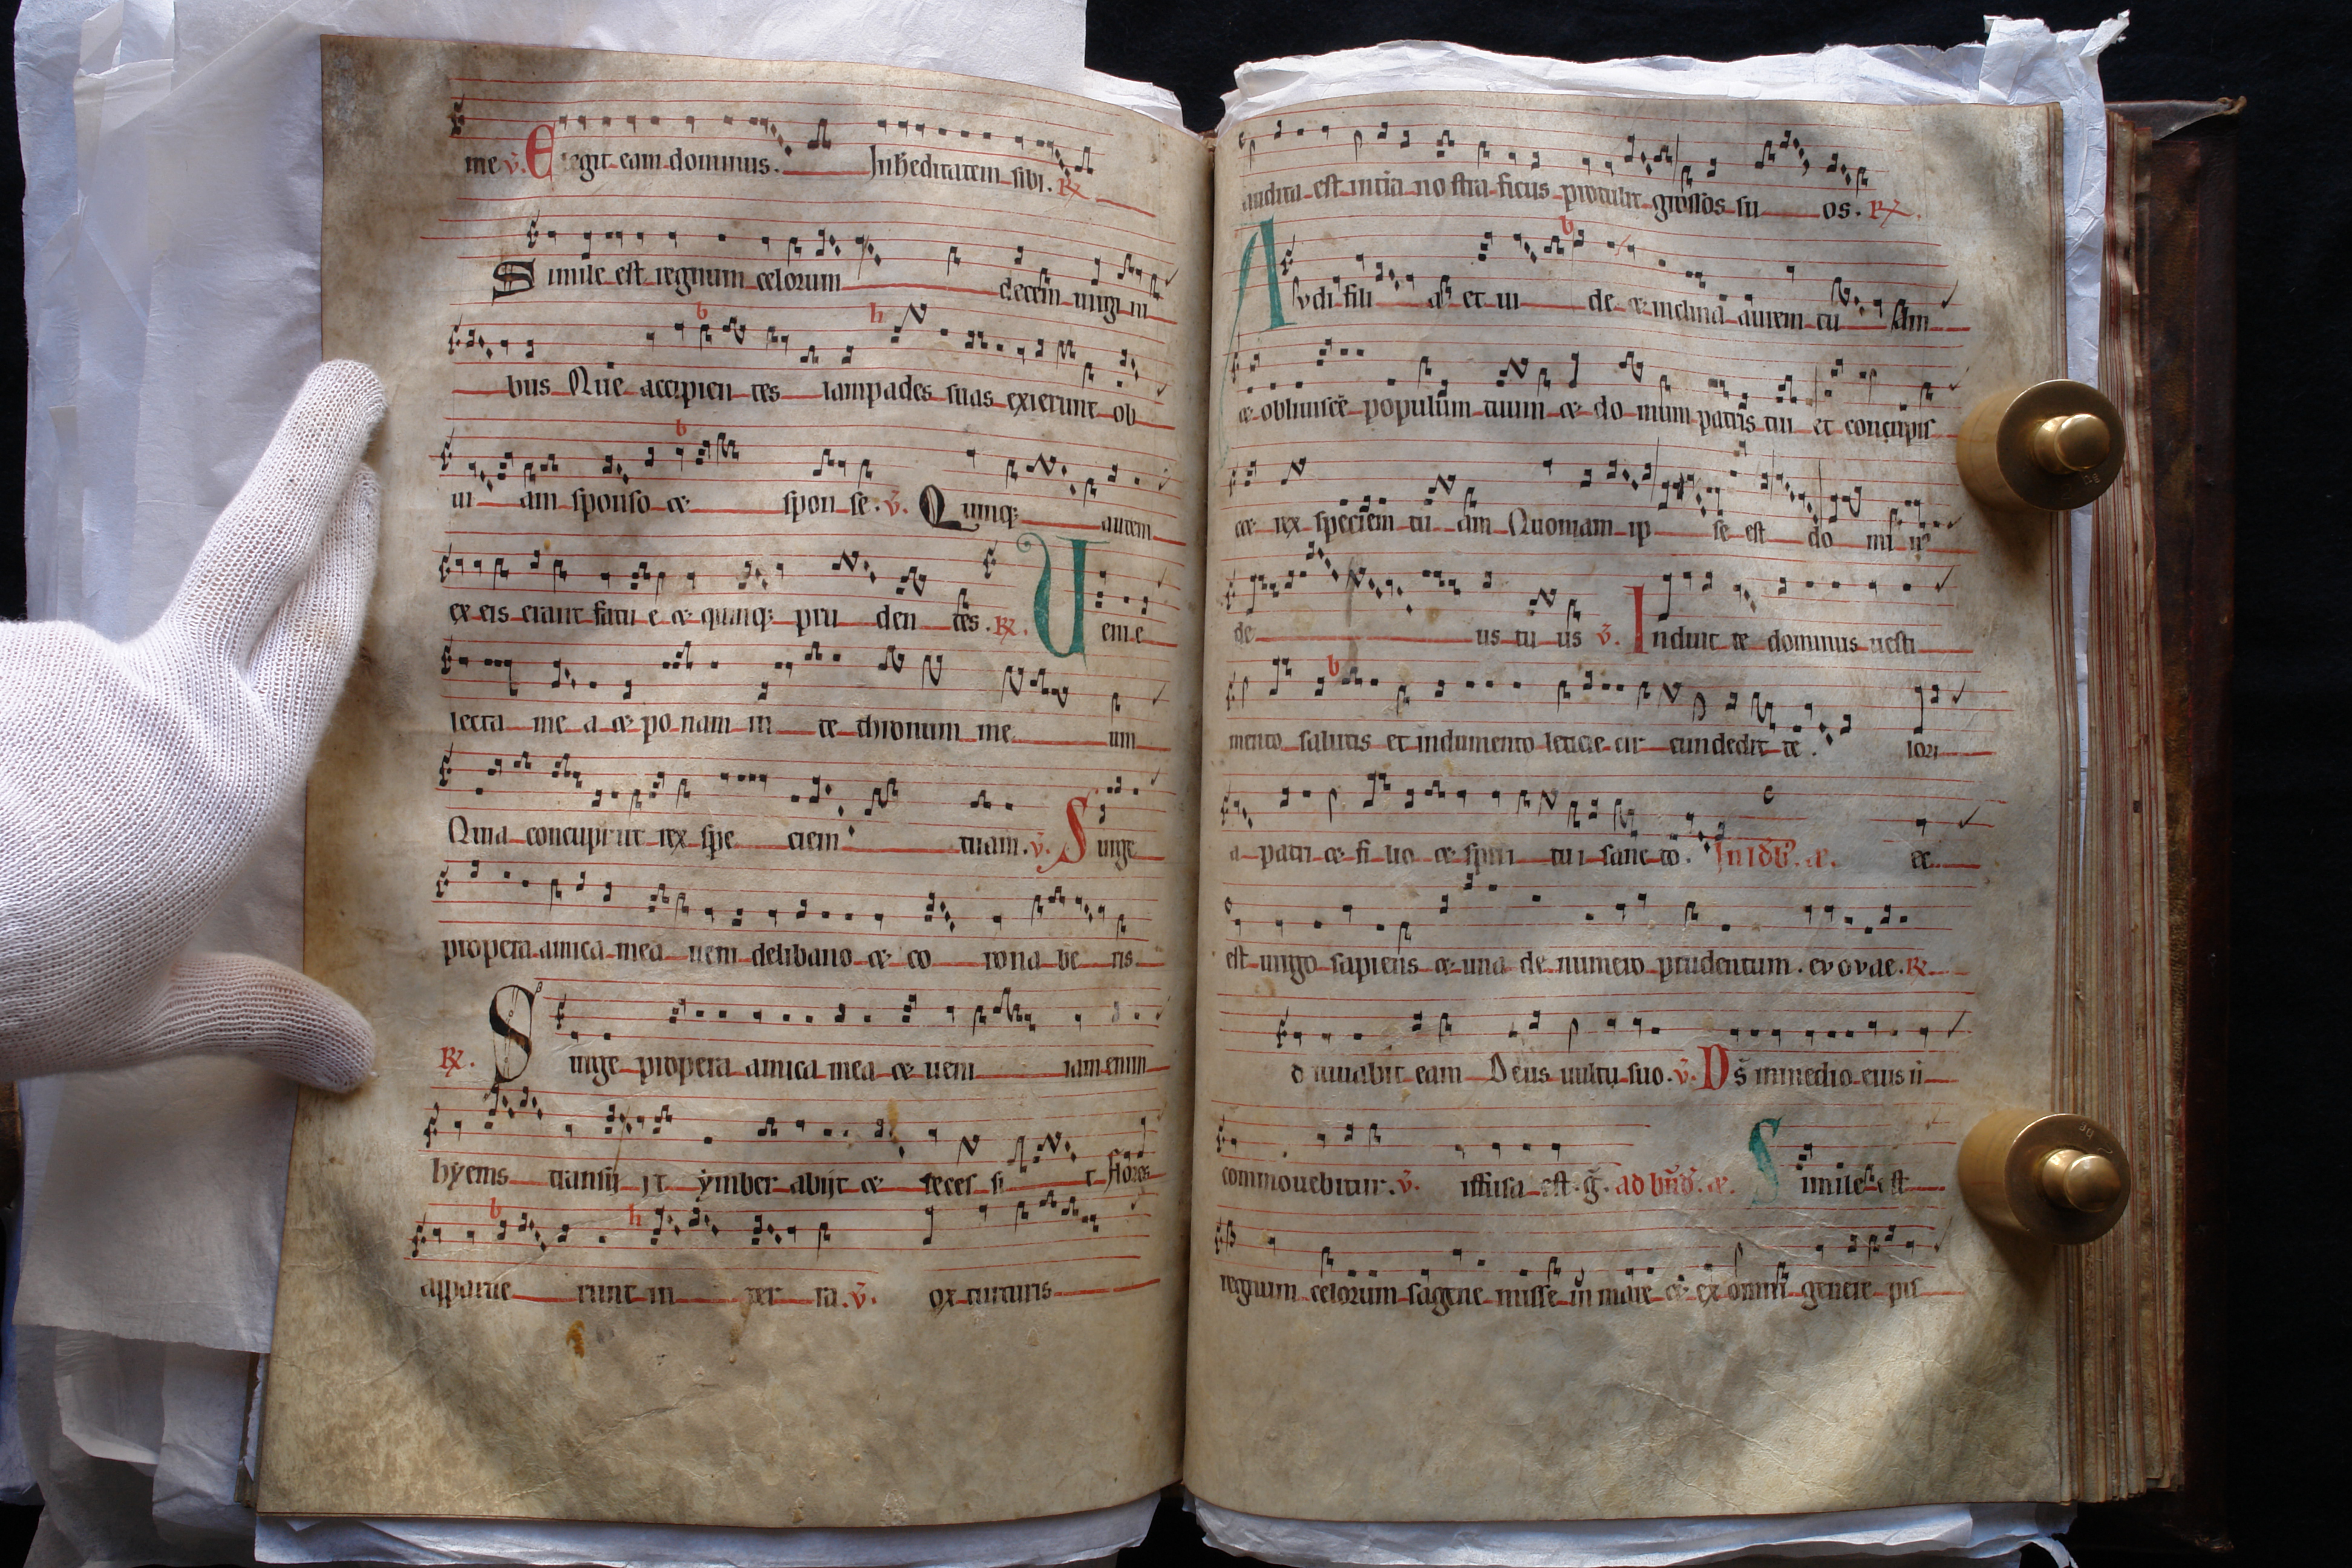 me v̄. Elegit eam dominus. In heditatem sibi. R̸
Simile est regnum celorum decem uirgini
bus Que accipien tes lampades suas exierunt ob
ui am sponso & spon se. v̄. Quinq; autem
ex eis erant fatu e & quinq; pru den tes. R̸. Ueni e
lecta me a & po nam in te thronum me um
Quia concupiuit rex spe ciem tuam. v̄. Surge
propera amica mea ueni de libano & co rona be ris
R̸. Surge propera amica mea & ueni iam enim
hyems transi it ymber abijt & reces si t flores
apparue runt in ter ra. v̄. ox turturis
audita est in tra no stra ficus protulit grossos su os. R̸.
Avdi fili a et ui de & inclina aurem tu am
& obliuisce populum tuum & do mum patris tui et concupis
cet rex speciem tu am Quoniam ip se est do mi n
de us tu us v̄. Induit te dominus uesti
mento salutis et indumento leticie cir cundedit te. lori
a patri & fi lio & spiri tu i sanc to. In ld. æ. ec
est uirgo sapiens & una de numero prudentum. evovae. R̸.
diuuabit eam Deus uultu suo. v̄. Ds̄ in medio eius n
commouebitur. v̄. iffusa est. ḡ. ad bn̄d. æ. Simile est
regnum celorum sagene misse in mare & ex omni genere pis